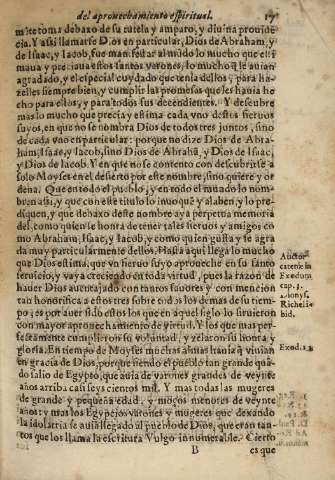 del aprouechamiento espiritual. 17
mite toma debaxo de su tutela y amparo, y diuina prouide
cia. Y assi llamarse Dios en particular, Dios de Abraham, y
de Isaac, y Iacob, fue manifestar al mundo lo mucho que esti
maua y preciaua estos santos varones, lo mucho que le auian
agradado, y el especial cuydado que tenia dellos, y para ha-
zelles siempre bien, y cumplir las promesas que les hauia he
cho para estos, y para todos sus decendientes. Y descubre
mas lo mucho que precia y estima cada vno destos sieruos
suyos, en que no se nombra Dios de todos tres juntos, sino
de cada vno en particular: porque no dize Dios de Abra-
ham, Isaac, y Iacob, sino Dios de Abrahã, y Dios de Isaac,
y Dios de Iacob. Y en que no se contento con descubrirse a
solo Moysen en el desierto por este nombre, sino quiere y or
dena. Que en todo el pueblo, y en todo el mundo lo nom
bren assi, y que con este titulo lo inuoquẽ y alaben, y lo pre-
diquen, y que debaxo deste nombre aya perpetua memoria
del, como quien se honra de tener tales sieruos y amigos co
mo Abraham, Isaac, y Iacob, y como quien gusta y se agra
da muy particularmente dellos. Hasta aqui llega lo mucho
que Dios estima, que vn sieruo suyo aproueche en su santo
seruicio, y vaya creciendo en toda virtud, pues la razon de
hauer Dios auentajado con tantos fauores y con mencion
tan honorifica a estos tres sobre todos los demas de su tiem-
po, es por auer sido estos los que en aquel siglo lo siruieron
con mayor aprouechamiento de virtud. Y los que mas per-
fectamente cumplieron su voluntad, y zelaron su honra y
gloria. En tiempo de Moyses muchas almas hauia que viuian
en gracia de Dios, porque siendo el pueblo tan grande quã-
do salio de Egypto, que auia de varones grandes de veynte
años arriba casi seys cientos mil. Y mas todas las mugeres
de grande y pequeña edad, y moços menores de veynte
años: y mas los Egypcios varones y mugeres que dexando
la idolatria se auia llegado al pueblo de Dios, que eran tan-
tos que los llama la escritura Vulgo innumerable. Cierto
B es que
Auctor
catenæ in
Exodum
cap. 3.
Dionys.
Richel. i
bid.
Exod. 12